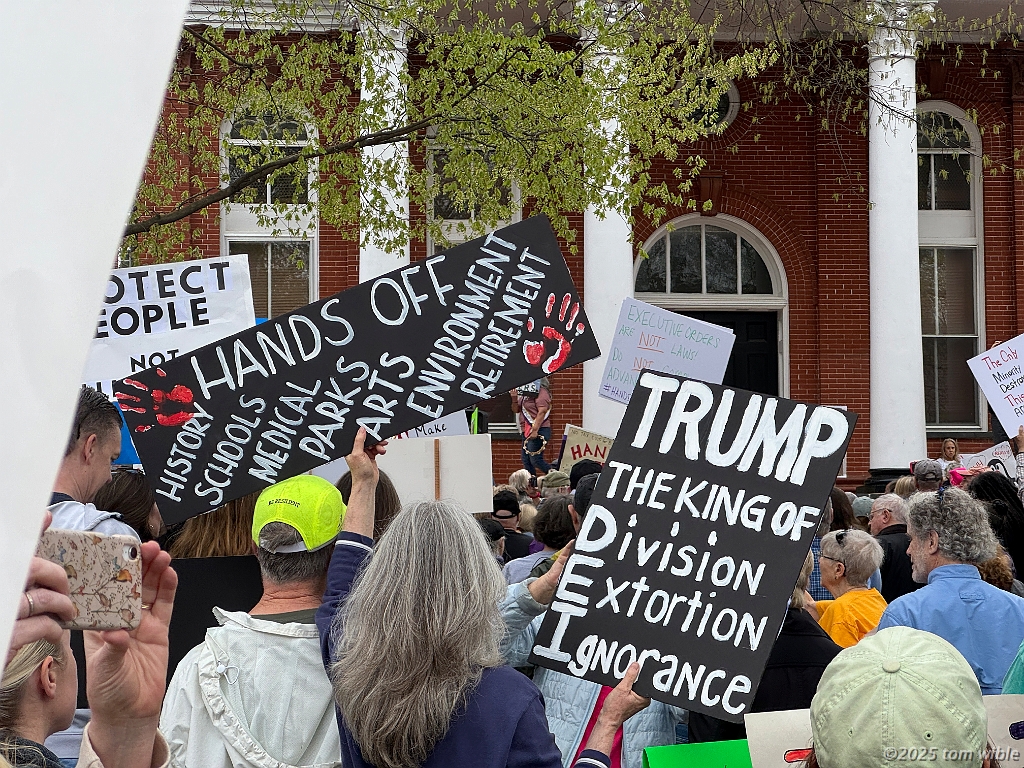 OTECT
EOPLE
NOT
HANDS OFF
HISTORY
SCHOOLS
MEDICAL
PARKS
ARTS
ENVIRONMENT
RETIREMENT
Make
HAN
EXECUTIVE ORDERS
ARE NOT LAWS!
DO NOT
ADVA
#HANDS
TRUMP
THE KING OF
Division
Extortion
Ignorance
The Only
Minority
Destroy
This
RESILIENT
©2025 tom wible